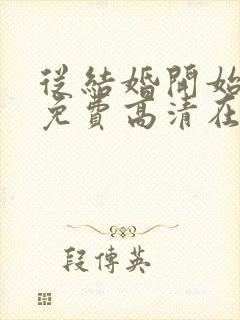 從結婚開始
免費高清在
段傳英